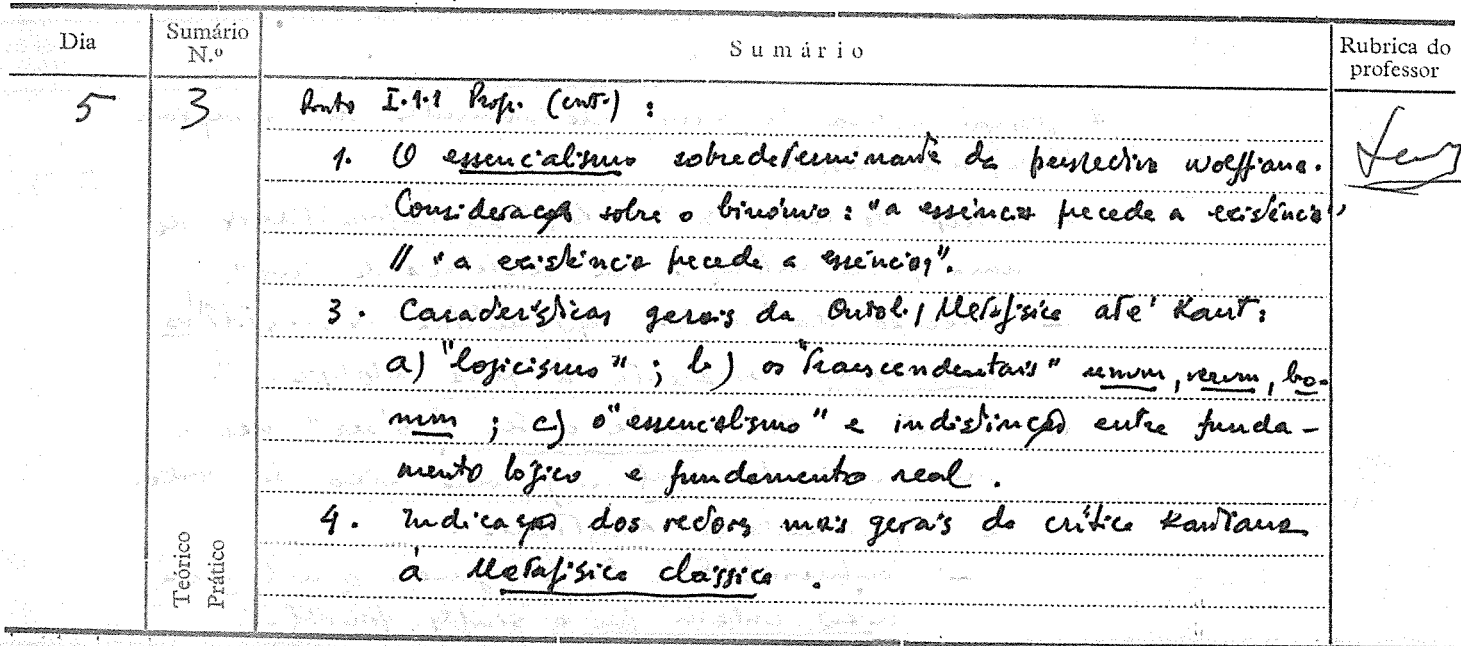 Dia
Sumário N.º
Sumário
Rubrica do professor
5
3
Ponto I.1.1 Progr. (cont.) :
1. O essencialismo sobredeterminante da perspectiva wolffiana.
Consideração sobre o binómio: "a essência precede a existência"
// "a existência precede a essência".
3. Características gerais da Ontol./Metafísica até Kant:
a) "logicismo" ; b) os "Transcendentais" unum, verum, bo-
num ; c) o "essencialismo" e indistinção entre funda-
mento lógico e fundamento real.
4. Indicação dos vectores mais gerais da crítica Kantiana
à Metafísica clássica.
Teórico
Prático